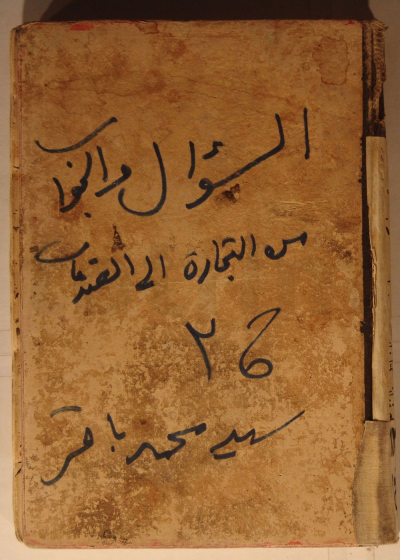 السؤال والجواب
من التجارة الى القضاء
ج ٢
سید محمد باقر